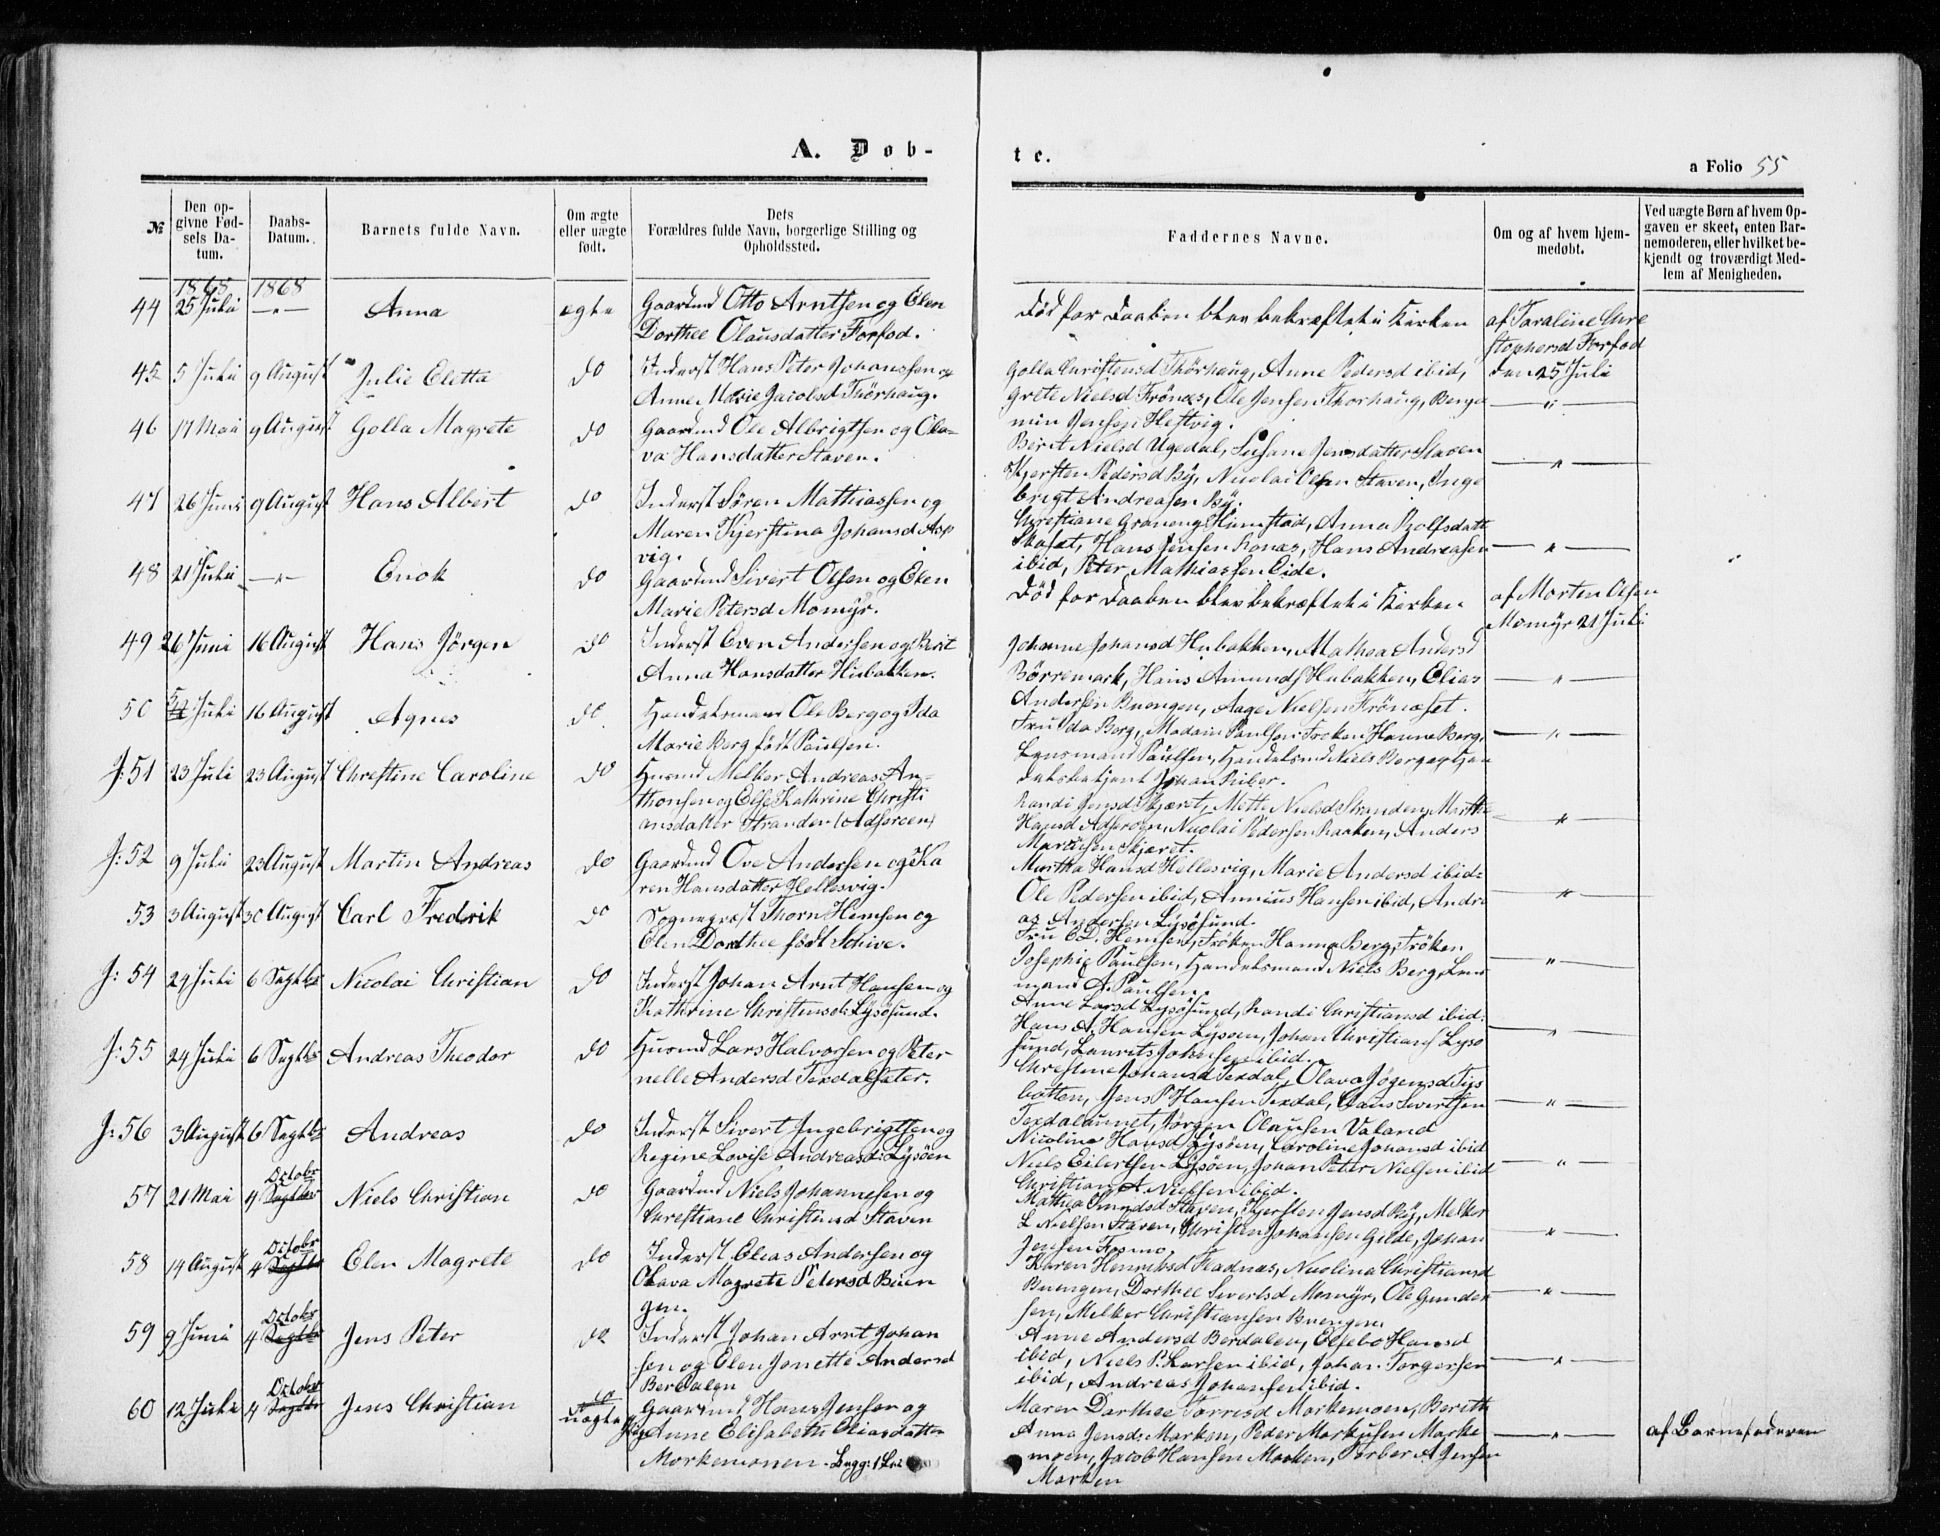 A. Døb-
te.
a Folio 55
№
Den op-
givne Fød-
sels Da-
tum.
Daabs-
Datum.
Barnets fulde Navn.
Om ægte
eller uægte
født.
Dets
Forældres fulde Navn, borgerlige Stilling og
Opholdssted.
Faddernes Navne.
Om og af hvem hjem-
medøbt.
Ved uægte Børn af hvem Op-
gaven er skeet, enten Bar-
nemoderen, eller hvilket be-
kjendt og troværdigt Med-
lem af Menigheden.
1868 1868
44 25 Juli —"— Anna ægte Gaardmd Otto Arntsen og Elen
Dorthee Olausdatter Forfod.
Død før Daaben blev bekræftet i Kirken
af Taraline Chri
stophersd Forfod
den 25 Juli
45 5 Juli 9 August Julie Eletta do Inderst Hans Peter Johanssen og
Anne Marie Jacobsd Thørhaug.
Golla Christensd Thørhaug, Anne Pedersd ibid,
Grete Nielsd Frönes, Ole Jensen Thorhaug, Benja
min Jensen Hestvig.
—"—
46 17 Mai 9 August Golla Magrete do Gaardmd Ole Albrigtsen og Ola-
va Hansdatter Staven.
Berit Nielsd Ugedal, Susane Jensdatter Staven
Kjersten Pedersd By, Nicolai Olsen Staven, Inge
brigt Andreasen By.
—"—
47 26 Juni 9 August Hans Albert do Inderst Søren Mathiassen og
Maren Kjerstina Johansd Asp
vig.
Christiane Graneng Himstad, Anna Rolfsdatt
Hans Jensen Hans Andreasen
ibid, Peter Mathiassen Eide.
—"—
48 21 Juli —"— Enok do Gaardmd Sivert Olsen og Elen
Marie Petersd Momyr.
Død før Daaben blev bekræftet i Kirken.
af Morten Olsen
Momyr 21 Juli
49 26 Juni 16 August Hans Jörgen do Inderst Even Andersen og Berit
Anna Hansdatter Hubakken.
Johanne Johansd Hubakken, Mathea Andersd
Börremark, Hans Amunds Hubakken, Elias
Andersen Buengen, Aage Nielsen Frönæset.
—"—
50 Juli 16 August Agnes do Handelsmand Ole Berg og Ida
Marie Berg født Paulsen.
Fru Ida Berg, Madam Paulsen, Froken Hanna Berg,
Lensmand Paulsen, Handelsmd Niels Berg og Han
delsbetjent Johan Riber.
—"—
J: 51 23 Juli 23 August Christine Caroline do Husmd Melker Andreas An-
thonsen og Else Kathrine Christi
ansdatter Stranden (Adsereen)
Randi Jensd Skjæret, Mette Nielsd Stranden, Marthe
Hansd Adsereen, Nicolai Pedersen Anders
Skjæret.
—"—
J: 52 9 Juli 23 August Martin Andreas do Gaardmd Ove Andersen og Ka
ren Hansdatter Hellesvig.
Martha Hansd Hellesvig, Marie Andersd ibid:
Ole Pedersen ibid, Annius Hansen ibid, Andre
as Andersen Lysösund.
—"—
53 3 August 30 August Carl Fredrik do Sognepræst Thorn Hemsen og
Elen Dorthee født Schive.
Fru E.D. Hemsen, Fröken Hanna Berg, Fröken
Josephie Paulsen, Handelsmand Niels Berg, Lens
mand A. Paulsen.
—"—
J: 54 29 Juli 6 Septbr Nicolai Christian do Inderst Johan Arnt Hansen og
Kathrine Christensdt Lysösund.
Anne Larsd Lysösund, Randi Christiansd ibid:
Hans A. Hansen Lysöen, Johan Christians Lysö
sund, Laurits Johansen ibid.
—"—
J: 55 24 Juli 6 Septbr Andreas Theodor do Husmd Lars Halvorsen og Peter-
nelle Andersd Texdalsæter.
Christine Johansd Texdal, Olava Jögensd Tiss
botten, Jens P Hansen Texdal, Claus Sivertsen
Texdalaunet, Jörgen Olausen Valand
—"—
J: 56 3 August 6 Septbr Andreas do Inderst Sivert Ingebrigtsen og
Regine Lovise Andreasd: Lysöen
Nicoline Hansd Lysöen, Caroline Johansd ibid
Niels Eilertsen Lysöen, Johan Peter Nielsen ibid
Christian A. Nielsen ibid.
—"—
57 21 Mai 4 Septbr Octobr Niels Christian do Gaardmd Niels Johannesen og
Christiane Christiansd Staven
Mathea Staven, Kjersten Jensd By, Melker
L Nielsen Staven, Christen Johansen Gilde, Johan
Jensen Fosmo.
—"—
58 14 August 4 Septbr Octobr Elen Magrete do Inderst Elias Andersen og
Olava Magrete Petersd Buen
gen.
Karen Henriksd Nicolina Christiansd
Buengen, Dorthee Sivertsd Momyr, Ole Gunder
sen, Melker Christiansen Buengen.
—"—
59 9 Juni 4 Septbr Octobr Jens Peter do Inderst Johan Arnt Johan
sen og Elen Jonette Andersd
Berdalen
Anne Andersd Berdalen, Elsebe Hansd
ibid, Niels P. Larsen ibid, Johan Torgersen
ibid, Andreas Johansen ibid.
—"—
60 12 Juli 4 Septbr Octobr Jens Christian uægte Gaardmd Hans Jensen og
Pige Anne Elisabeth Eliasdatter
Morkemonen. Begg: 1 Lei
Maren Dorthee Torresd Morkemoen, Berith
Anna Jensd: Marken, Peder Markusen Morke
moen, Jacob Hansen Morken, Torber A Jensen
Morken
—"—
af Barnefaderen